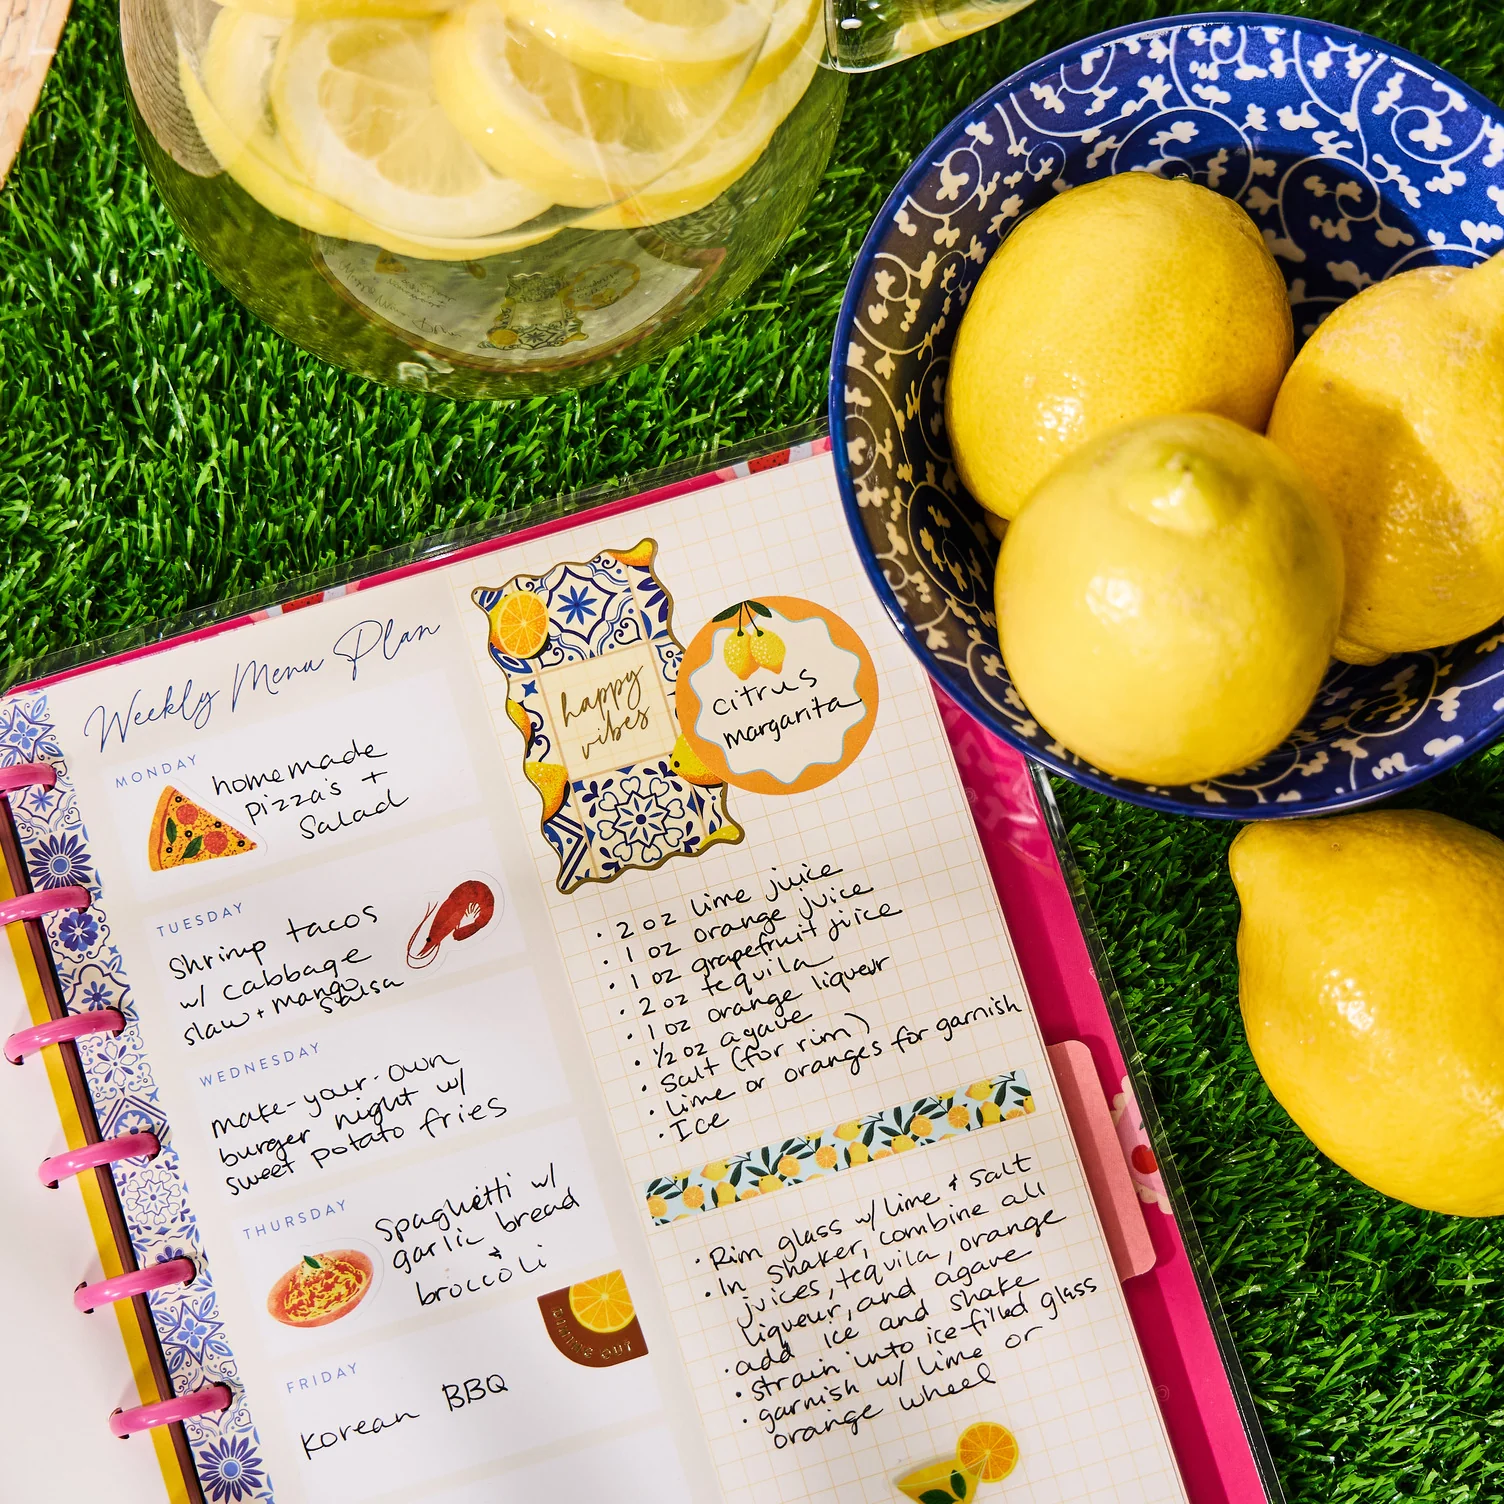 Weekly Menu Plan
MONDAY
homemade
pizza's +
Salad
TUESDAY
Shrimp tacos
w/ cabbage
slaw + mango
salsa
WEDNESDAY
make-your-own
burger night w/
sweet potato fries
THURSDAY
Spaghetti w/
garlic bread
&
broccoli
DINING OUT
FRIDAY
Korean BBQ
happy
vibes
citrus
margarita
• 2 oz lime juice
• 1 oz orange juice
• 1 oz grapefruit juice
• 2 oz tequila
• 1 oz orange liqueur
• ½ oz agave
• Salt (for rim)
• lime or oranges for garnish
• Ice
• Rim glass w/ lime & salt
• In shaker, combine all
juices, tequila, orange
liqueur, and agave
• add ice and shake
• strain into ice filled glass
• garnish w/ lime or
orange wheel